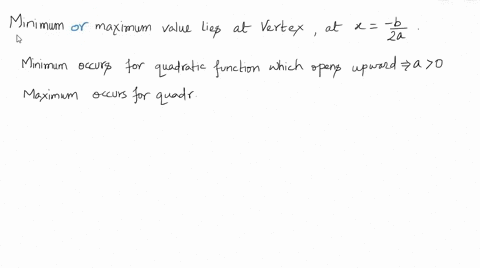 Minimum or maximum value lies at Vertex, at x = -b/2a.
Minimum occurs for quadratic function which opens upward ⇒ a > 0
Maximum occurs for quadr